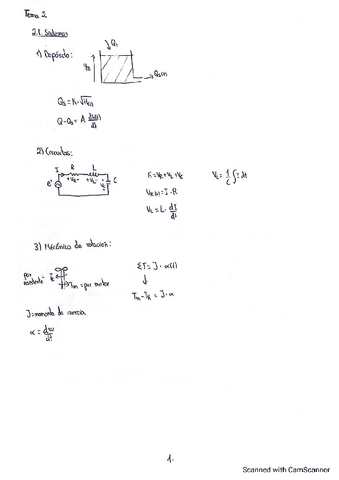 Tema 2
2.1. Sistemas
1) Depósito:
Q₁
H(t)
Q₀(t)
Q₀ = K·√H(t)
Q-Q₀ = A dH(t)/dt
2) Circuitos:
I R L C
+VR- +VL- Vc
e
E = VR+VL+Vc
Vc = 1/C ∫I dt
VR(t) = I · R
VL = L · dI/dt
3) Mecánico de rotación:
par resistente = TR
Tm = par motor
ΣT = J · α(t)
↓
Tm - TR = J · α
J = momento de inercia
α = dw/dt
1.
Scanned with CamScanner